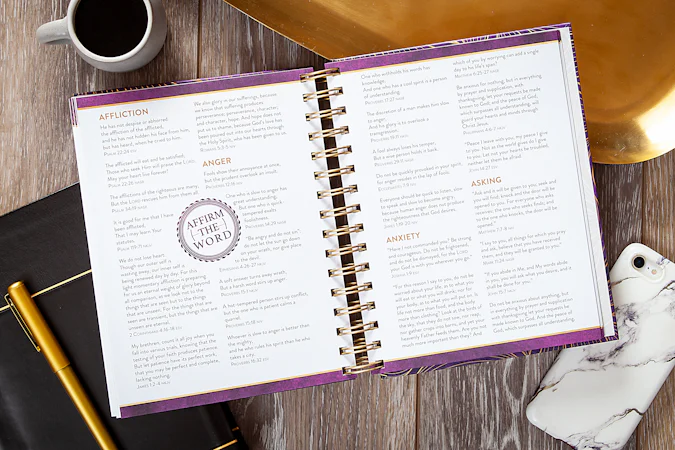 AFFLICTION
He has not despise or abhorred
the affliction of the afflicted,
and he has not hidden his face from him,
but has heard, when he cried to him.
Psalm 22:24
The afflicted will eat and be satisfied;
Those who seek Him will praise the LORD.
May your heart live forever!
Psalm 22:26
The afflictions of the righteous are many,
But the LORD rescues him from them all.
Psalm 34:19
It is good for me that I have
been afflicted,
That I may learn Your
statutes.
Psalm 119:71
We do not lose heart,
Though our outer self is
wasting away, our inner self is
being renewed day by day. For this
light momentary affliction is preparing
for us an eternal weight of glory beyond
all comparison, as we look not to the
things that are seen but to the things
that are unseen. For the things that are
seen are transient, but the things that are
unseen are eternal.
2 Corinthians 4:16-18
My brethren, count it all joy when you
fall into various trials, knowing that the
testing of your faith produces patience.
But let patience have its perfect work,
that you may be perfect and complete,
lacking nothing.
James 1:2-4
We also glory in our sufferings, because
we know that suffering produces
perseverance; perseverance, character;
and character, hope. And hope does not
put us to shame, because God's love has
been poured out into our hearts through
the Holy Spirit, who has been given to us.
Romans 5:3-5
ANGER
Fools show their annoyance at once,
but the prudent overlook an insult.
Proverbs 12:16
One who is slow to anger has
great understanding;
But one who is quick-
tempered exalts
foolishness.
Proverbs 14:29
"Be angry and do not sin";
do not let the sun go down
on your wrath, nor give place
to the devil.
Ephesians 4:26-27
A soft answer turns away wrath,
But a harsh word stirs up anger.
Proverbs 15:1
A hot-tempered person stirs up conflict,
but the one who is patient calms a
quarrel.
Proverbs 15:18
Whoever is slow to anger is better than
the mighty,
and he who rules his spirit than he who
takes a city.
Proverbs 16:32
AFFIRM
THE
WORD
One who withholds his words has
knowledge,
And one who has a cool spirit is a person
of understanding.
Proverbs 17:27
The discretion of a man makes him slow
to anger,
And his glory is to overlook a
transgression.
Proverbs 19:11
A fool always loses his temper,
But a wise person holds it back.
Proverbs 29:11
Do not be quickly provoked in your spirit,
for anger resides in the lap of fools.
Ecclesiastes 7:9
Everyone should be quick to listen, slow
to speak and slow to become angry,
because human anger does not produce
the righteousness that God desires.
James 1:19-20
ANXIETY
"Have I not commanded you? Be strong
and courageous. Do not be frightened,
and do not be dismayed, for the LORD
your God is with you wherever you go."
Joshua 1:9
"For this reason I say to you, do not be
worried about your life, as to what you
will eat or what you will drink; nor for
your body, as to what you will put on. Is
life not more than food, and the body
more than clothing? Look at the birds of
the sky, that they do not sow, nor reap,
nor gather crops into barns, and yet your
heavenly Father feeds them. Are you not
much more important than they? And
which of you by worrying can add a single
day to his life's span?
Matthew 6:25-27
Be anxious for nothing, but in everything
by prayer and supplication, with
thanksgiving, let your requests be made
known to God; and the peace of God,
which surpasses all understanding, will
guard your hearts and minds through
Christ Jesus.
Philippians 4:6-7
"Peace I leave with you; my peace I give
to you. Not as the world gives do I give
to you. Let not your hearts be troubled,
neither let them be afraid.
John 14:27
ASKING
"Ask and it will be given to you; seek and
you will find; knock and the door will be
opened to you. For everyone who asks
receives; the one who seeks finds; and
to the one who knocks, the door will be
opened."
"I say to you, all things for which you pray
and ask, believe that you have received
them, and they will be granted to you."
Mark 11:24
"If you abide in Me, and My words abide
in you, you will ask what you desire, and it
shall be done for you."
John 15:7
Do not be anxious about anything, but
in everything by prayer and supplication
with thanksgiving let your requests be
made known to God. And the peace of
God, which surpasses all understanding,